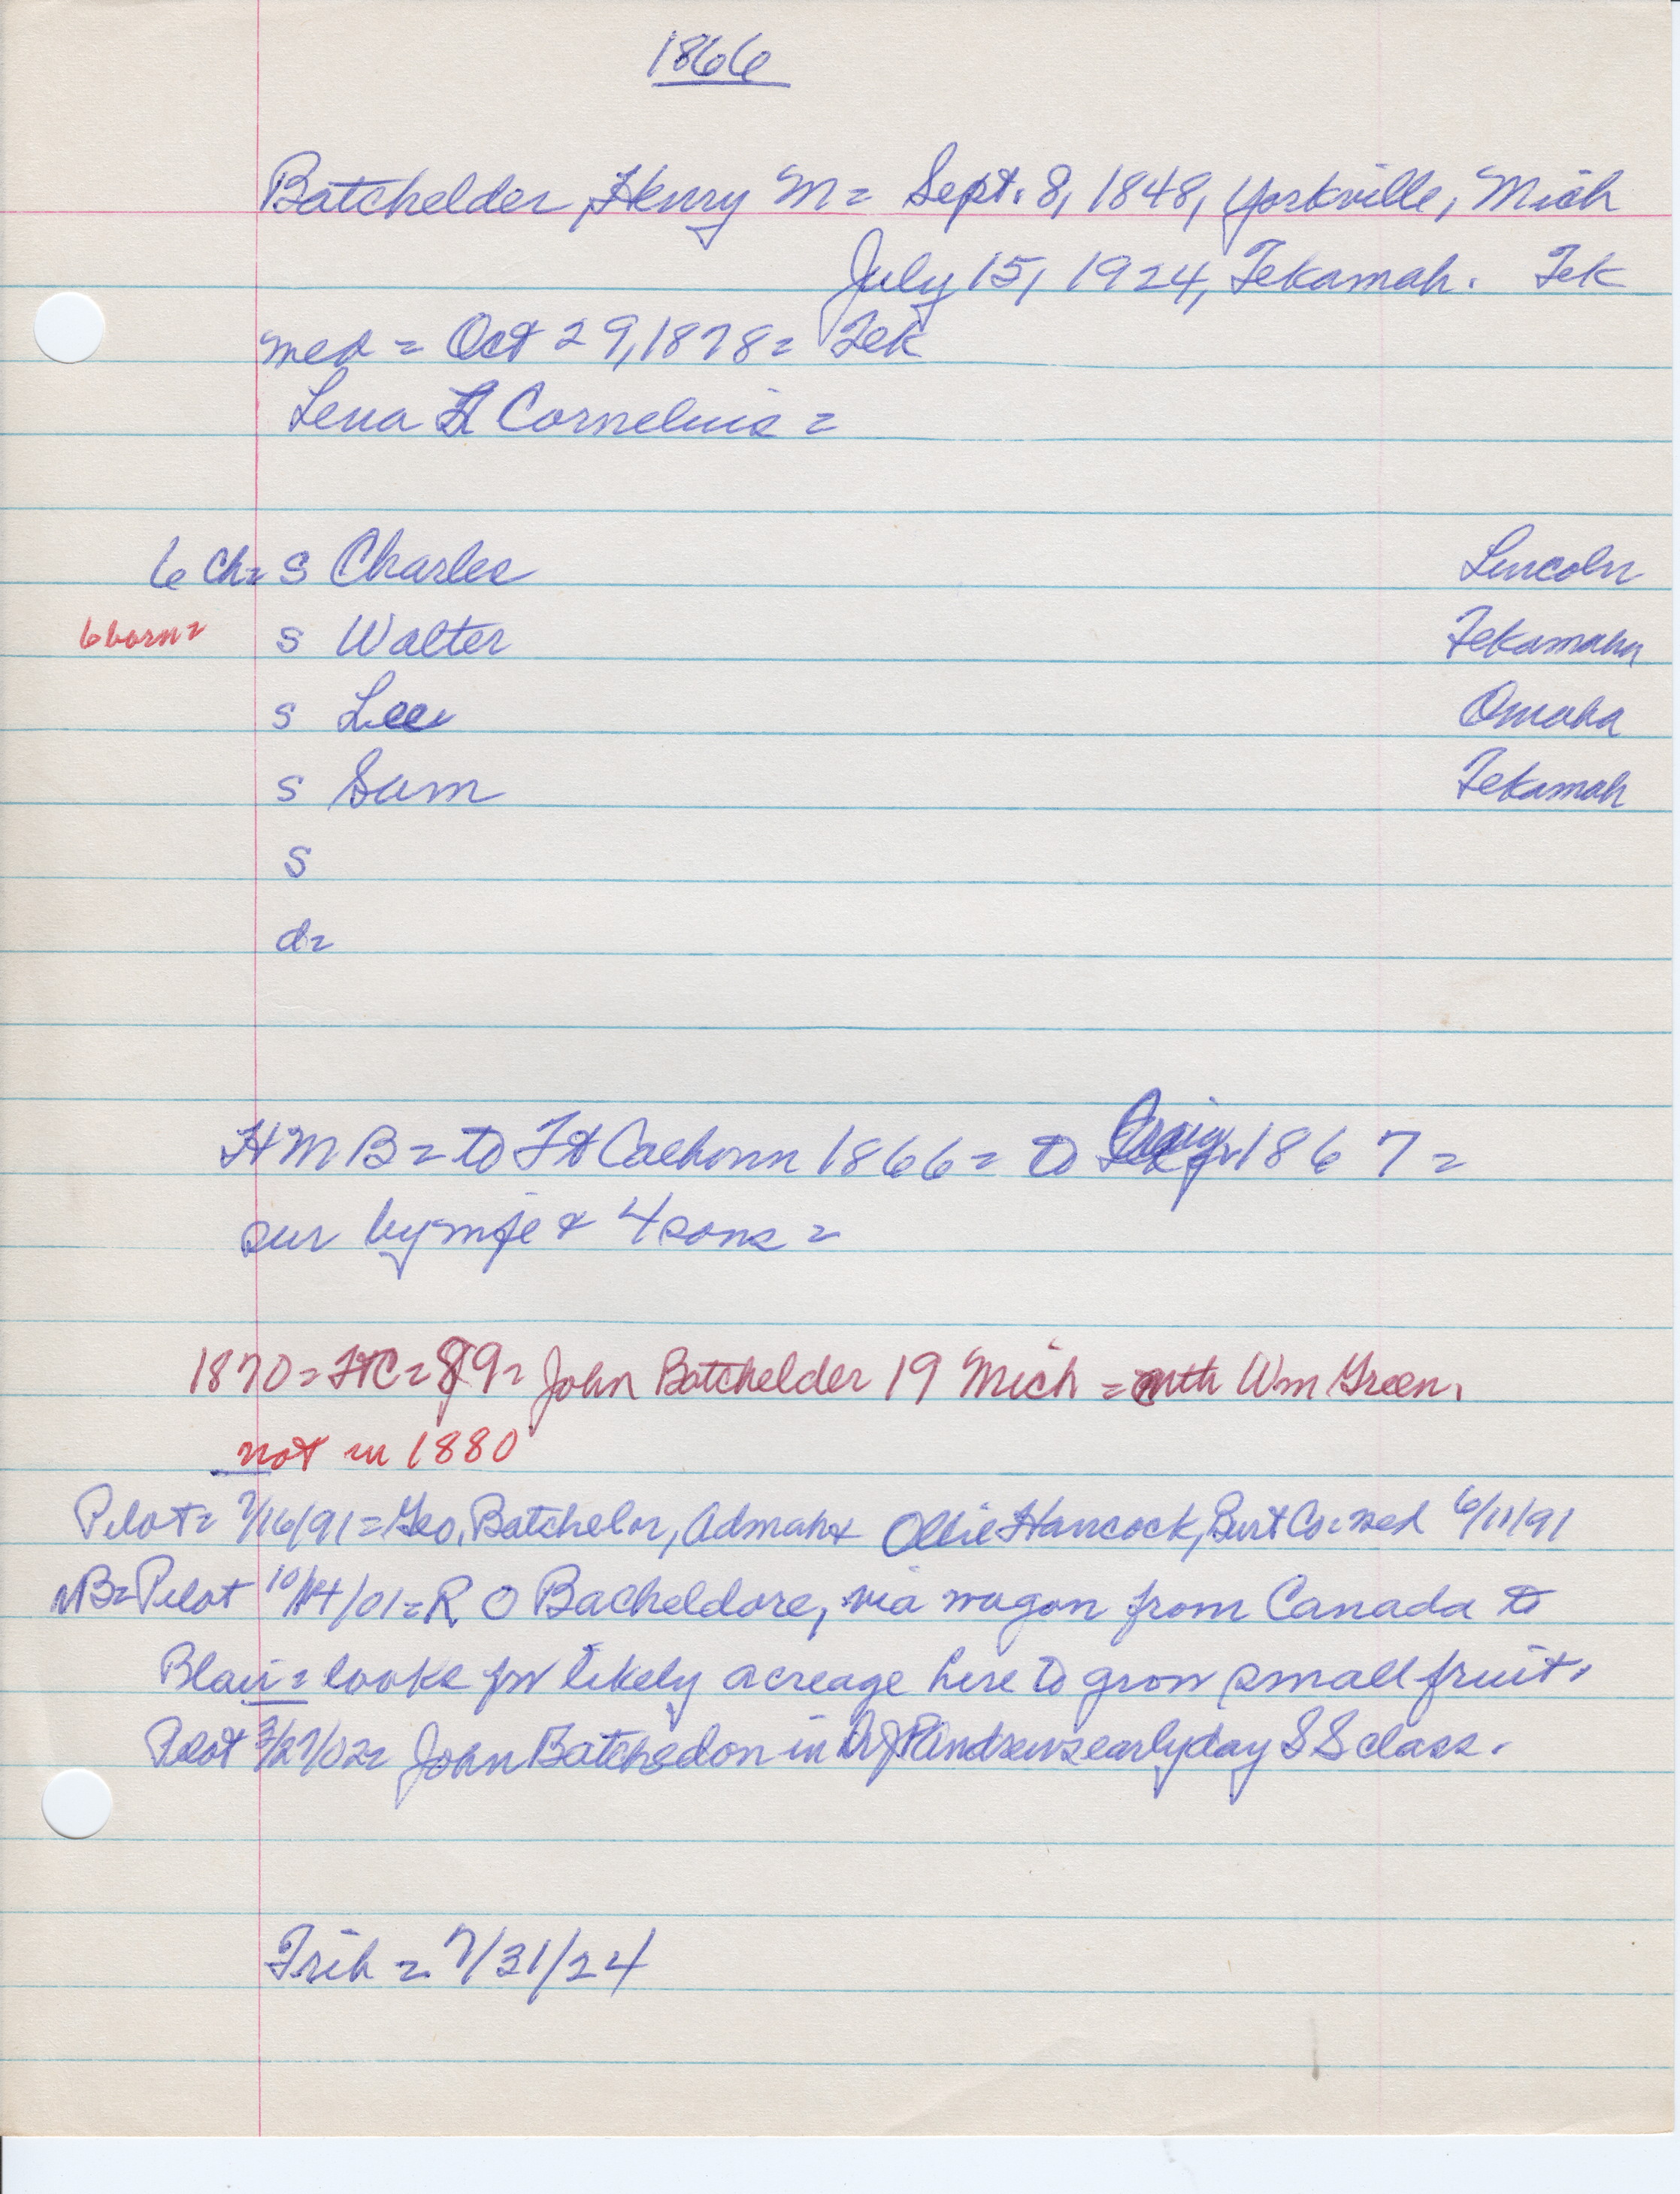 1866
Batchelder, Henry M = Sept. 8, 1848, Yorkville, Mich
July 15, 1924, Tekamah. Tek
med = Oct 29, 1878 = Tek
Lena H Cornelius =
6 Ch = S Charles Lincoln
6 born = S Walter Tekamah
S Lee Omaha
S Sam Tekamah
S
d =
H M B = to Ft Calhoun 1866 = to Craig 1867 =
sur by wife & 4 sons =
1870 = FtC = 89 = John Batchelder 19 Mich = with Wm Green.
not in 1880
Pilot = 7/16/91 = Geo. Batchelor, Admah & Ollie Hancock, Burt Co. wed 6/11/91
NB = Pilot 10/14/01 = R O Bacheldore, via wagon from Canada to
Blair = looks for likely acreage here to grow small fruit.
Pilot 3/27/02 = John Batchedon in Andrews early day S S class.
Trib = 7/31/24